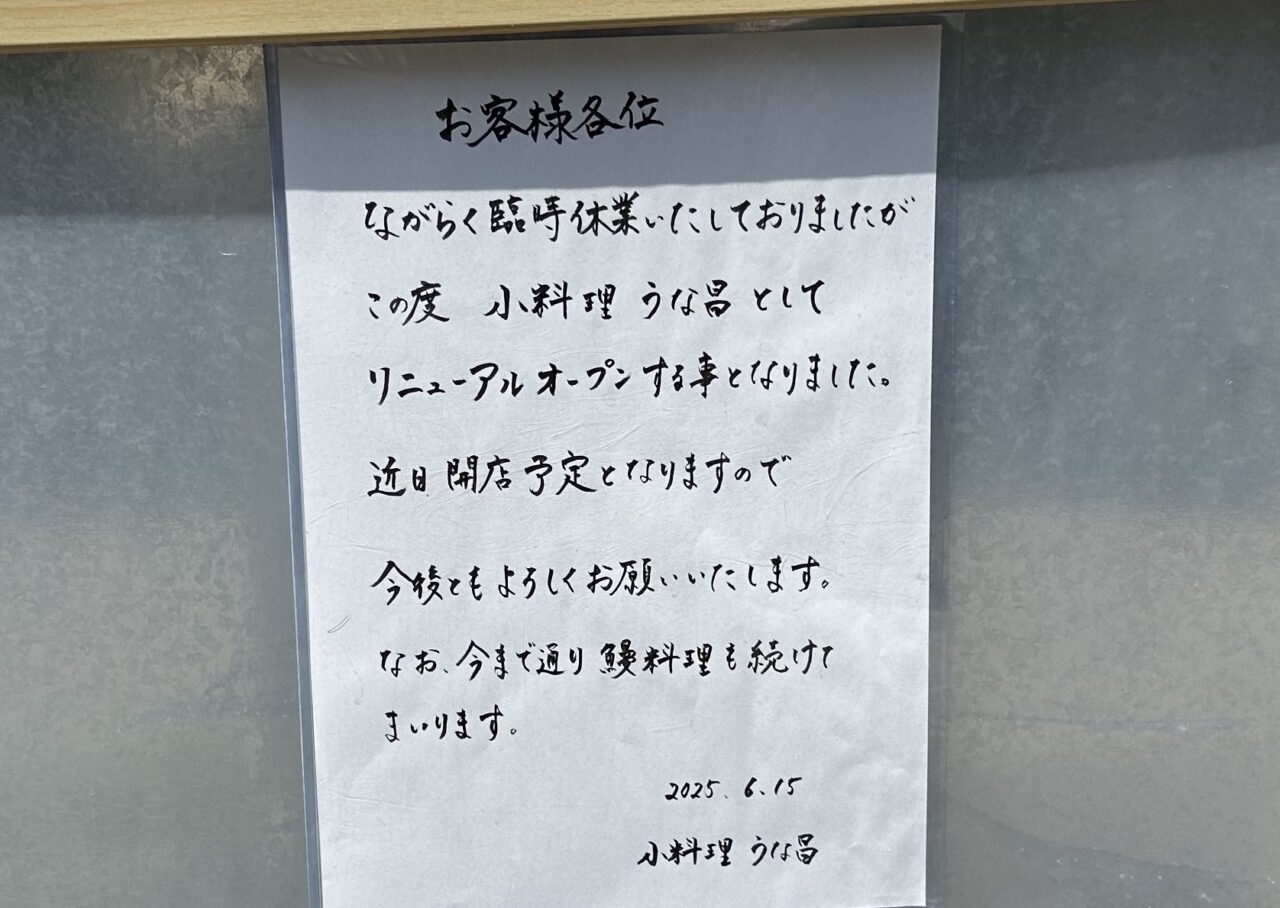 お客様各位
ながらく臨時休業いたしておりましたが
この度 小料理 うな昌として
リニューアルオープンする事となりました。
近日開店予定となりますので
今後ともよろしくお願いいたします。
なお、今まで通り鰻料理も続けて
まいります。
2025.6.15
小料理 うな昌